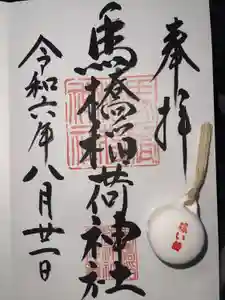 奉拝
馬橋稲荷神社
令和六年八月廿一日
願い鈴